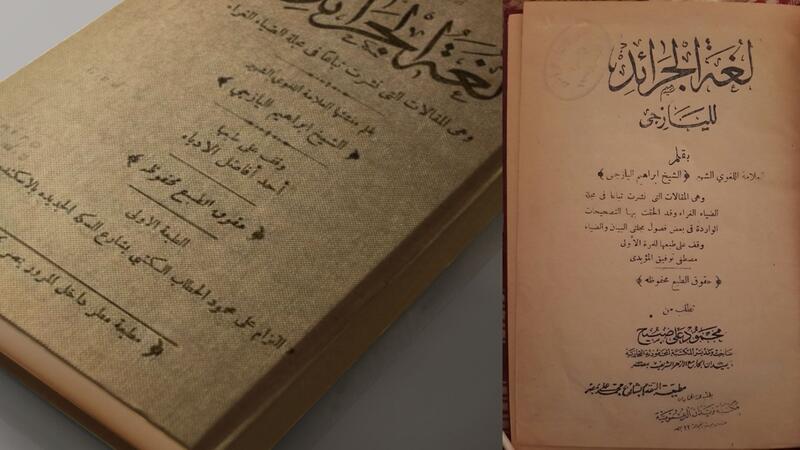 لغة الجرائد
وهى المقالات التى نشرت تباعاً فى مجلة الضياء الغراء
بقلم منشئها العلامة اللغوى الشهير
﴿ الشيخ ابراهيم اليازجى ﴾
وقف على طبعها
أحد أفاضل الادباء
﴿ حقوق الطبع محفوظة ﴾
الطبعة الاولى
التزام على محمود الحطاب الكتبى بشارع السكة الجديدة
﴿ مطبعة مطر داخل المرور
لغة الجرائد
لليازجى
بقلم
العلامة اللغوي الشهير ﴿ الشيخ ابراهيم اليازجى ﴾
وهى المقالات التى نشرت تباعا فى مجلة
الضياء الغراء وقد الحقت بها التصحيحات
الواردة فى بعض فصول مجلتى البيان والضياء
وقف على طبعها للمرة الأولى
مصطفى توفيق المؤيدى
﴿ حقوق الطبع محفوظه ﴾
تطلب من
محمود على صبيح
صاحب ومدير المكتبة المحمودية التجارية
بميدان الجامع الأزهر الشريف بمصر
مطبعة التقدم بشارع محمد على بمصر